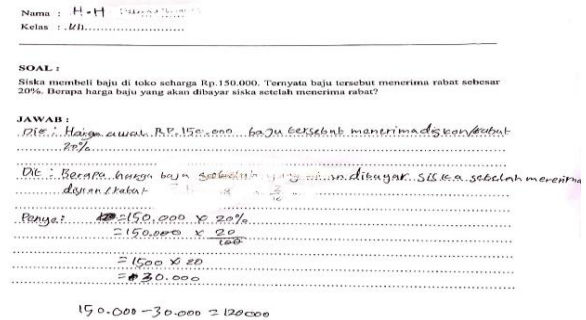 Nama : H.H
Kelas : VII
SOAL :
Siska membeli baju di toko seharga Rp.150.000. Ternyata baju tersebut menerima rabat sebesar
20%. Berapa harga baju yang akan dibayar siska setelah menerima rabat?
JAWAB :
Dit : Harga awal RP. 150.000 baju tersebut menerima diskon/rabat
20%
Dit : Berapa harga baju yang dibayar siska setelah menerima
diskon/rabat
Penye : =150.000 x 20%
=150.000 x 20/100
=1500 x 20
=30.000
150.000-30.000=120000